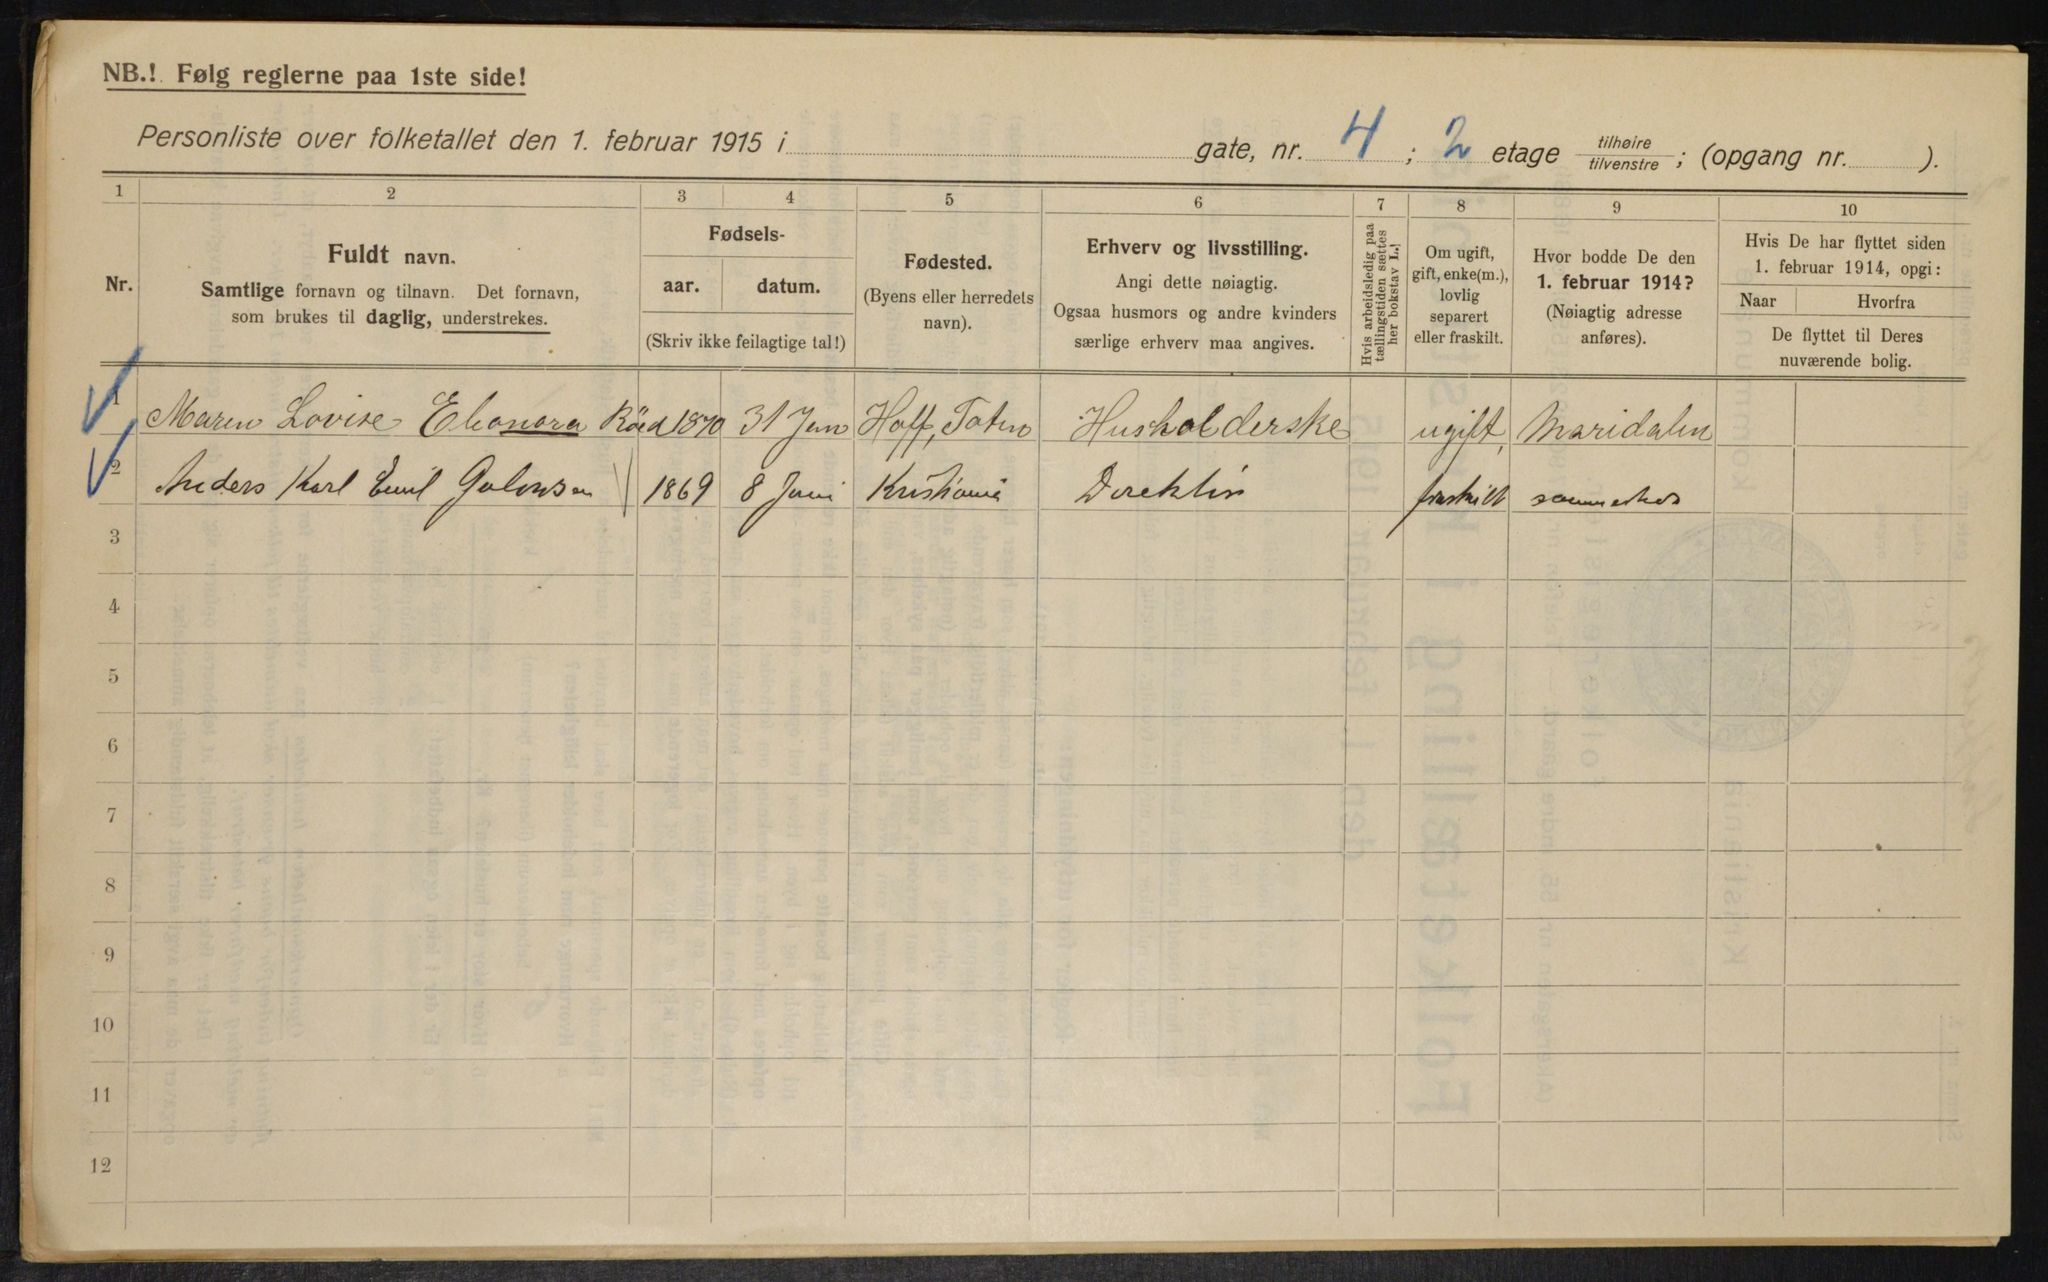 NB.! Følg reglerne paa 1ste side!
Personliste over folketallet den 1. februar 1915 i gate, nr. 4 ; 2 etage tilhøire / tilvenstre ; (opgang nr. ).
1 2 3 4 5 6 7 8 9 10
Nr.
Fuldt navn.
Samtlige fornavn og tilnavn. Det fornavn,
som brukes til daglig, understrekes.
Fødsels-
aar. datum.
(Skriv ikke feilagtige tal!)
Fødested.
(Byens eller herredets
navn).
Erhverv og livsstilling.
Angi dette nøiagtig.
Ogsaa husmors og andre kvinders
særlige erhverv maa angives.
Hvis arbeidsledig paa
tællingstiden sættes
her bokstav L.!
Om ugift,
gift, enke(m.),
lovlig
separert
eller fraskilt.
Hvor bodde De den
1. februar 1914?
(Nøiagtig adresse
anføres).
Hvis De har flyttet siden
1. februar 1914, opgi:
Naar Hvorfra
De flyttet til Deres
nuværende bolig.
1 Maren Lovise Eleonora Röed 1870 31 Jan Hoff, Toten Husholderske ugift, Maridalen
2 Anders Karl Emil 1869 8 Juni Kristiania Direktör fraskilt sammesteds
3
4
5
6
7
8
9
10
11
12